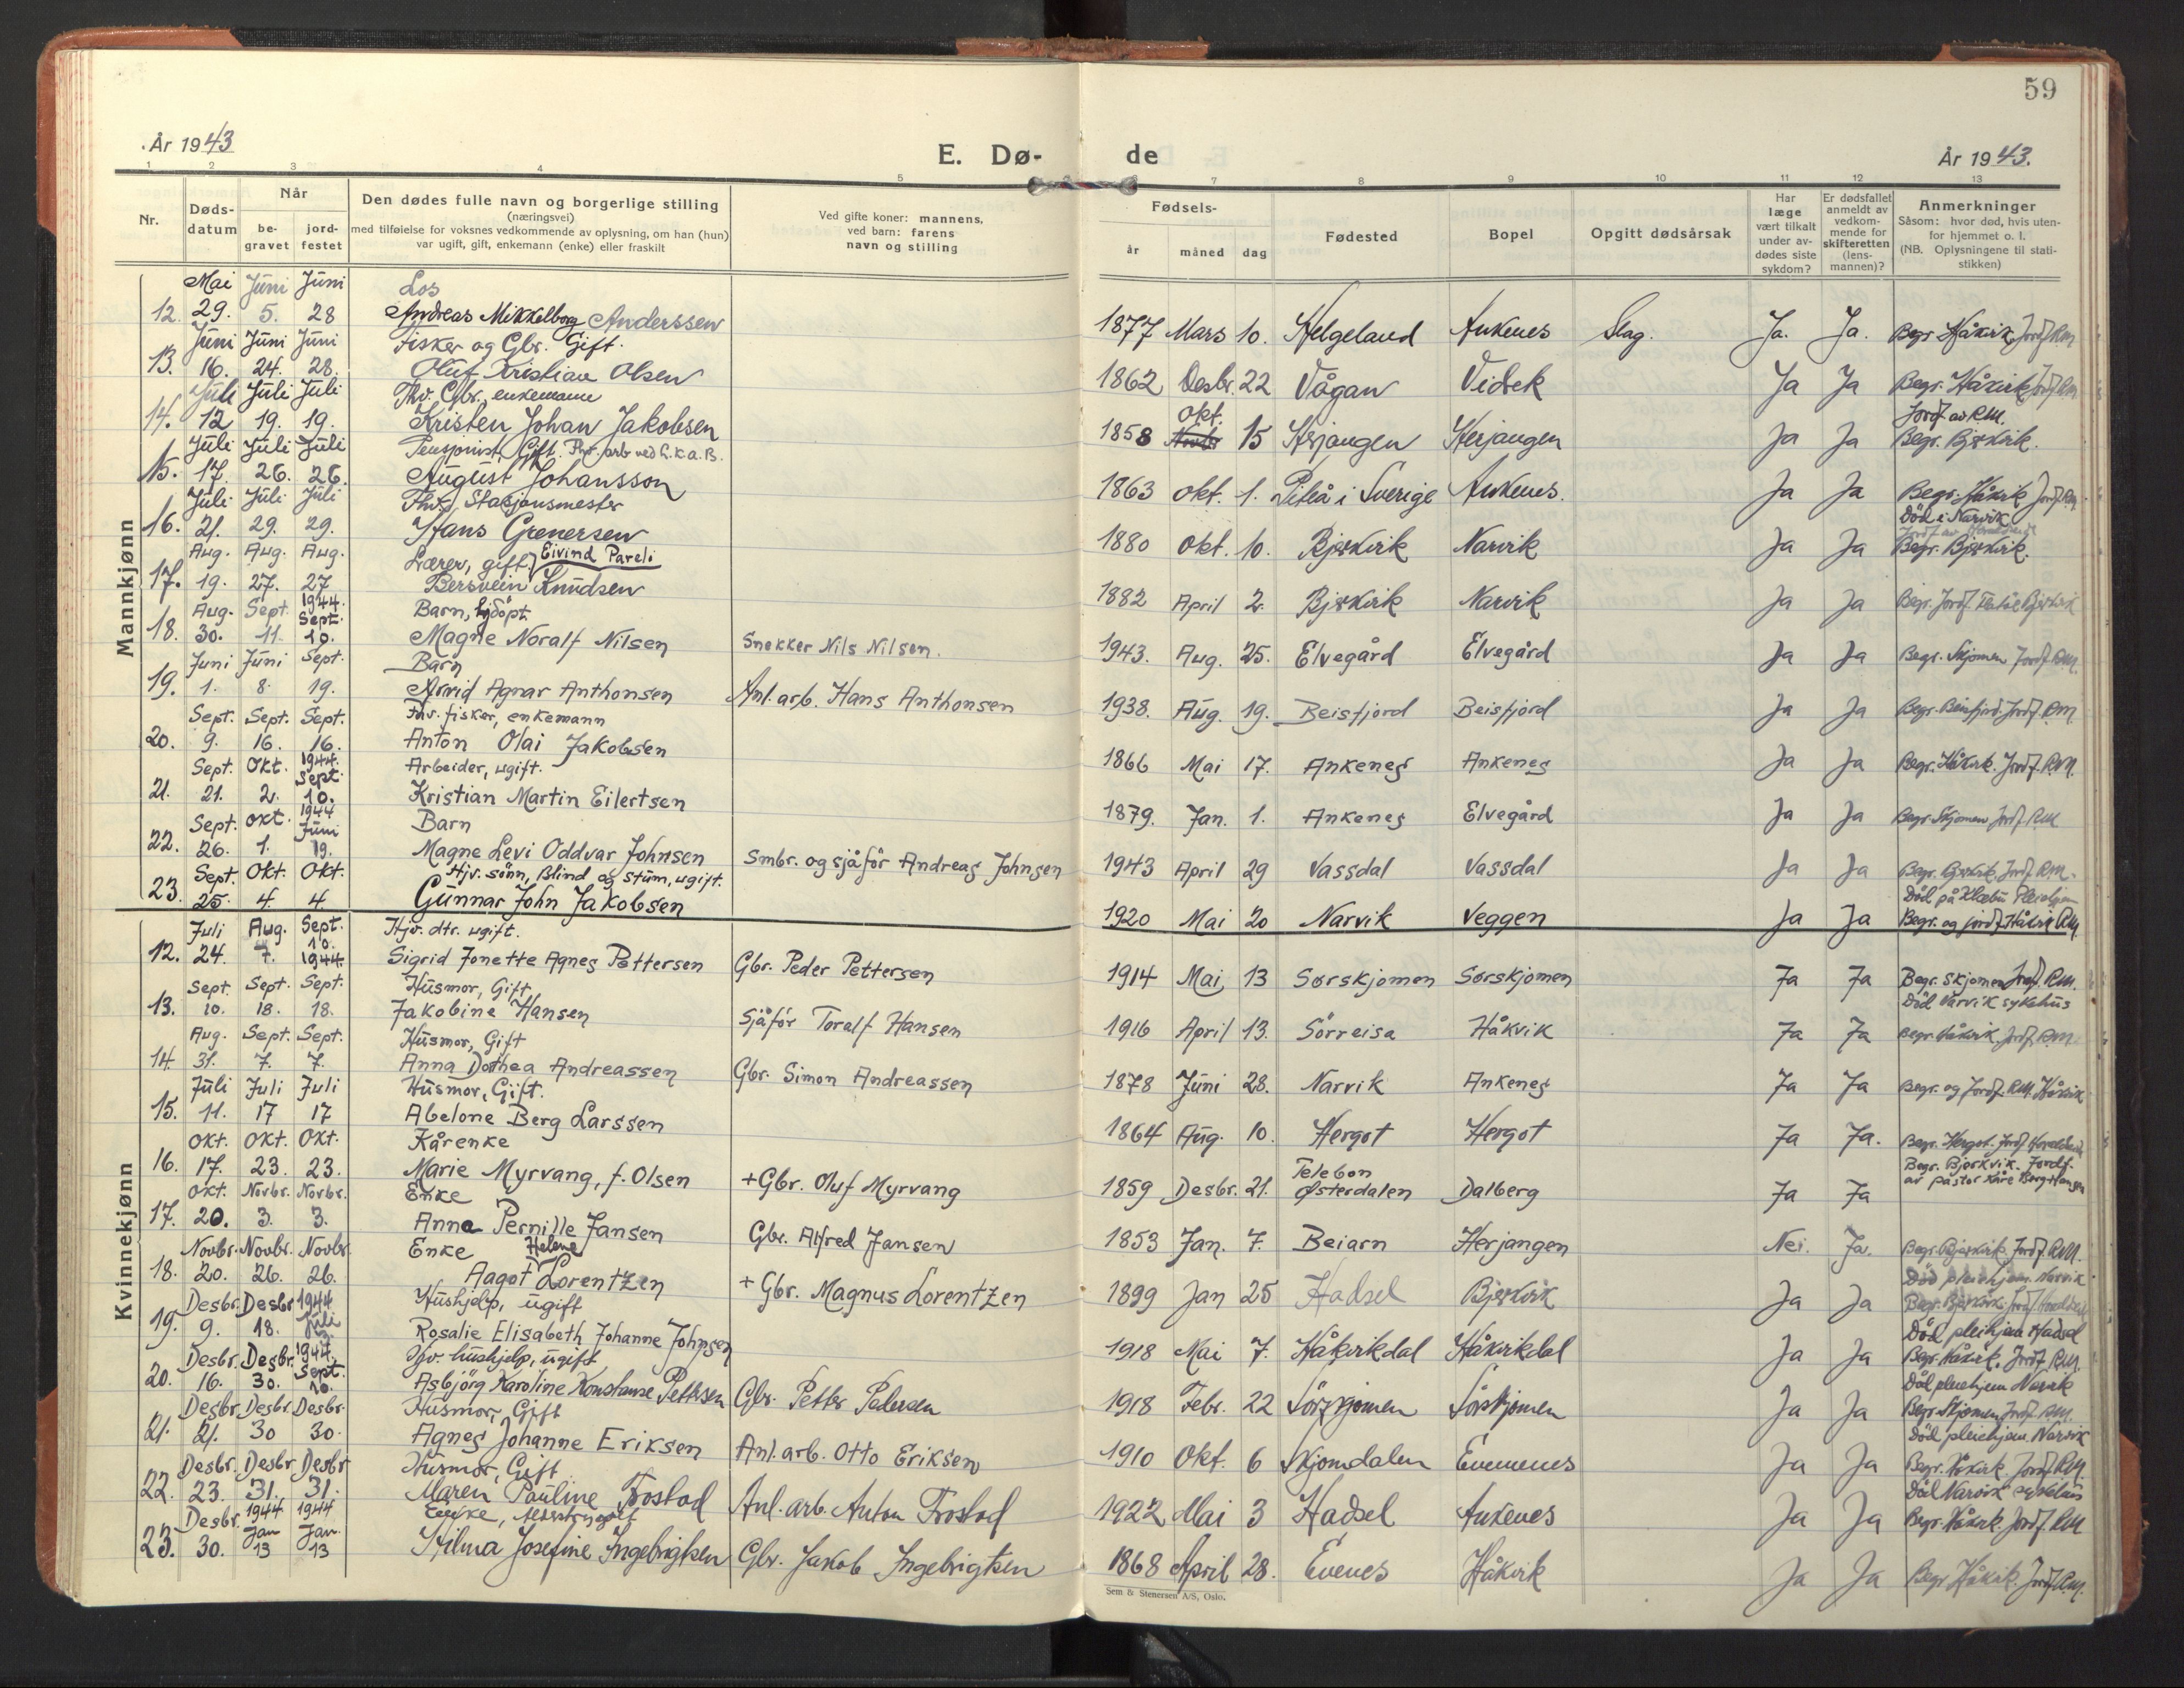 59
År 1943
E. Dø-
de
År 1943.
1 2 3 4 5 6 7 8 9 10 11 12 13
Nr.
Døds-
datum
Når
be-
gravet
jord-
festet
Den dødes fulle navn og borgerlige stilling
(næringsvei)
med tilføielse for voksnes vedkommende av oplysning, om han (hun)
var ugift, gift, enkemann (enke) eller fraskilt
Ved gifte koner: mannens,
ved barn: farens
navn og stilling
Fødsels-
år måned dag
Fødested
Bopel
Opgitt dødsårsak
Har
læge
vært tilkalt
under av-
dødes siste
sykdom?
Er dødsfallet
anmeldt av
vedkom-
mende for
skifteretten
(lens-
mannen)?
Anmerkninger
Såsom: hvor død, hvis uten-
for hjemmet o. l.
(NB. Oplysningene til stati-
stikken)
Mannkjønn
Mai Juni Juni Los
12. 29. 5. 28 Andreas Mikkelborg Anderssen 1877 Mars 10. Helgeland Ankenes Slag. Ja. Ja. Begr. Håkvik. Jordf. RM
Juni Juni Juni Fisker og Gbr. Gift.
13. 16. 24. 28. Oluf Kristian Olsen 1862 Desbr. 22 Vågan Vidrek Ja Ja Begr. Håkvik Jordf. RM
Juli Juli Juli Fhv. Gbr., enkemann Okt. Jordf. av RM.
14. 12 19. 19. Kristen Johan Jakobsen 1858 Novbr 15 Herjangen Herjangen Ja Ja Begr. Bjerkvik.
Juli Juli Juli Pensjonist, Gift. Fhv. arb ved L.K.A.B.
15. 17. 26. 26. August Johansson 1863 Okt. 1. Piteå i Sverige Ankenes. Ja Ja Begr. Håkvik Jordf. RM.
Juli Juli Juli Fhv. Stasjonsmester Död i Narvik
16. 21. 29. 29. Hans Grenersen 1880 Okt. 10. Bjerkvik Narvik Ja Ja Begr. Bjerkvik.
Aug. Aug. Aug. Lærer, gift. Eivind Pareli
17. 19. 27. 27 Bersvein Knudsen 1882 April 2. Bjerkvik Narvik Ja Ja Begr. Jordf. Bjerkvik
Aug. Sept. 1944. Sept. Barn, hjdöpt
18. 30. 11. 10. Magne Noralf Nilsen Snekker Nils Nilsen. 1943. Aug. 25. Elvegård Elvegård Ja Ja Begr. Skjomen Jordf. RM.
Juni Juni Sept. Barn
19. 1. 8. 19. Arvid Agnar Anthonsen Anl. arb. Hans Anthonsen 1938. Aug. 19. Beisfjord Beisfjord Ja Ja Begr. Beisfjord. Jordf. RM.
Sept. Sept. Sept. Fhv. fisker, enkemann
20. 9. 16. 16. Anton Olai Jakobsen 1866 Mai 17. Ankenes Ankenes Ja Ja Begr. Håkvik. Jordf. RM.
Sept. Okt. 1944. Sept Arbeider, ugift.
21. 21. 2. 10. Kristian Martin Eilertsen 1879. Jan. 1. Ankenes Elvegård Ja Ja Begr. Skjomen Jordf. RM
Sept. Okt. 1944 Juni Barn
22. 26. 1. 19. Magne Levi Oddvar Johnsen Smbr. og sjåför Andreas Johnsen 1943 April 29 Vassdal Vassdal Ja Ja Begr. Bjerkvik. Jordf. RM.
Sept. Okt. Okt. Hjv. sönn, Blind og stum, ugift. Död på Klæbu Pleiehjem
23. 25. 4. 4. Gunnar John Jakobsen 1920 Mai 20 Narvik Veggen Ja Ja Begr. og jordf. Håkvik RM.
Kvinnekjønn
Juli Aug. Sept. Hjv. dtr. ugift.
12. 24. 7. 10. 1944. Sigrid Jonette Agnes Pettersen Gbr. Peder Pettersen 1914 Mai 13 Sørskjomen Sørskjomen Ja Ja Begr. Skjomen Jordf. RM.
Sept. Sept. Sept. Husmor, Gift Död Narvik sykehus
13. 10. 18. 18. Jakobine Hansen Sjåför Toralf Hansen 1916 April 13. Sörreisa Håkvik Ja Ja Begr. Håkvik. Jordf. RM.
Aug. Sept. Sept. Husmor, Gift
14. 31. 7. 7. Anna Dorthea Andreassen Gbr. Simon Andreassen 1878 Juni 28. Narvik Ankenes Ja Ja Begr. og Jordf. RM. Håkvik
Juli Juli Juli Husmor, Gift.
15. 11. 17 17 Abelone Berg Larssen 1864 Aug. 10. Hergot Hergot Ja Ja. Begr. Hergot. Jordf.
Okt. Okt. Okt. Kårenke Telebon Begr. Bjerkvik. Jordf.
16. 17. 23. 23. Marie Myrvang, f. Olsen +Gbr. Oluf Myrvang 1859 Desbr. 21. Østerdalen Dalberg Ja Ja av pastor Kåre Berg-Hansen
Okt. Novbr. Novbr. Enke
17. 20. 3. 3. Anna Pernille Jansen Gbr. Alfred Jansen 1853 Jan. 7. Beiarn Herjangen Nei. Ja. Begr. Bjerkvik. Jordf. RM.
Novbr. Novbr. Novbr. Enke Helene Död pleiehjem. Narvik
18. 20. 26. 26. Aagot Lorentzen + Gbr. Magnus Lorentzen 1899 Jan 25 Hadsel Bjerkvik Ja Ja Begr. Bjerkvik. Jordf.
Desbr. Desbr 1944 Juli Hushjelp, ugift Död pleiehjem Hadsel
19. 9. 18. Rosalie Elisabeth Johanne Johnsen 1918 Mai 7. Håkvikdal Håkvikdal Ja Ja Begr. Håkvik. Jordf. RM.
Desbr. Desbr. 1944. Sept. Hjv. hushjelp, ugift Död pleiehjem Narvik
20. 16. 30. 10. Asbjörg Karoline Konstanse Pettersen Gbr. Petter Pedersen 1918 Febr. 22 Sörskjomen Sörskjomen Ja Ja Begr. Skjomen Jordf. RM.
Desbr. Desbr. Desbr. Husmor, Gift Död pleiehjem. Narvik
21. 21. 30 30. Agnes Johanne Eriksen Anl. arb. Otto Eriksen 1910 Okt. 6 Skjomdalen Evenenes Ja Ja Begr. Håkvik Jordf. RM.
Desbr. Desbr Desbr Husmor, Gift Död Narvik sykehus
22. 23. 31. 31. Maren Pauline Frostad Anl. arb. Anton Frostad 1922 Mai 3 Hadsel Ankenes Ja Ja Begr. Håkvik. Jordf. RM
Desbr. 1944 Jan 1944 Jan. Enke, alderstrygdet
23. 30. 13 13 Hilma Josefine Ingebrigtsen Gbr. Jakob Ingebrigtsen 1868 April 28. Evenes Håkvik Ja Ja Begr. Håkvik. Jordf. RM.
Sem & Stenersen A/S, Oslo.